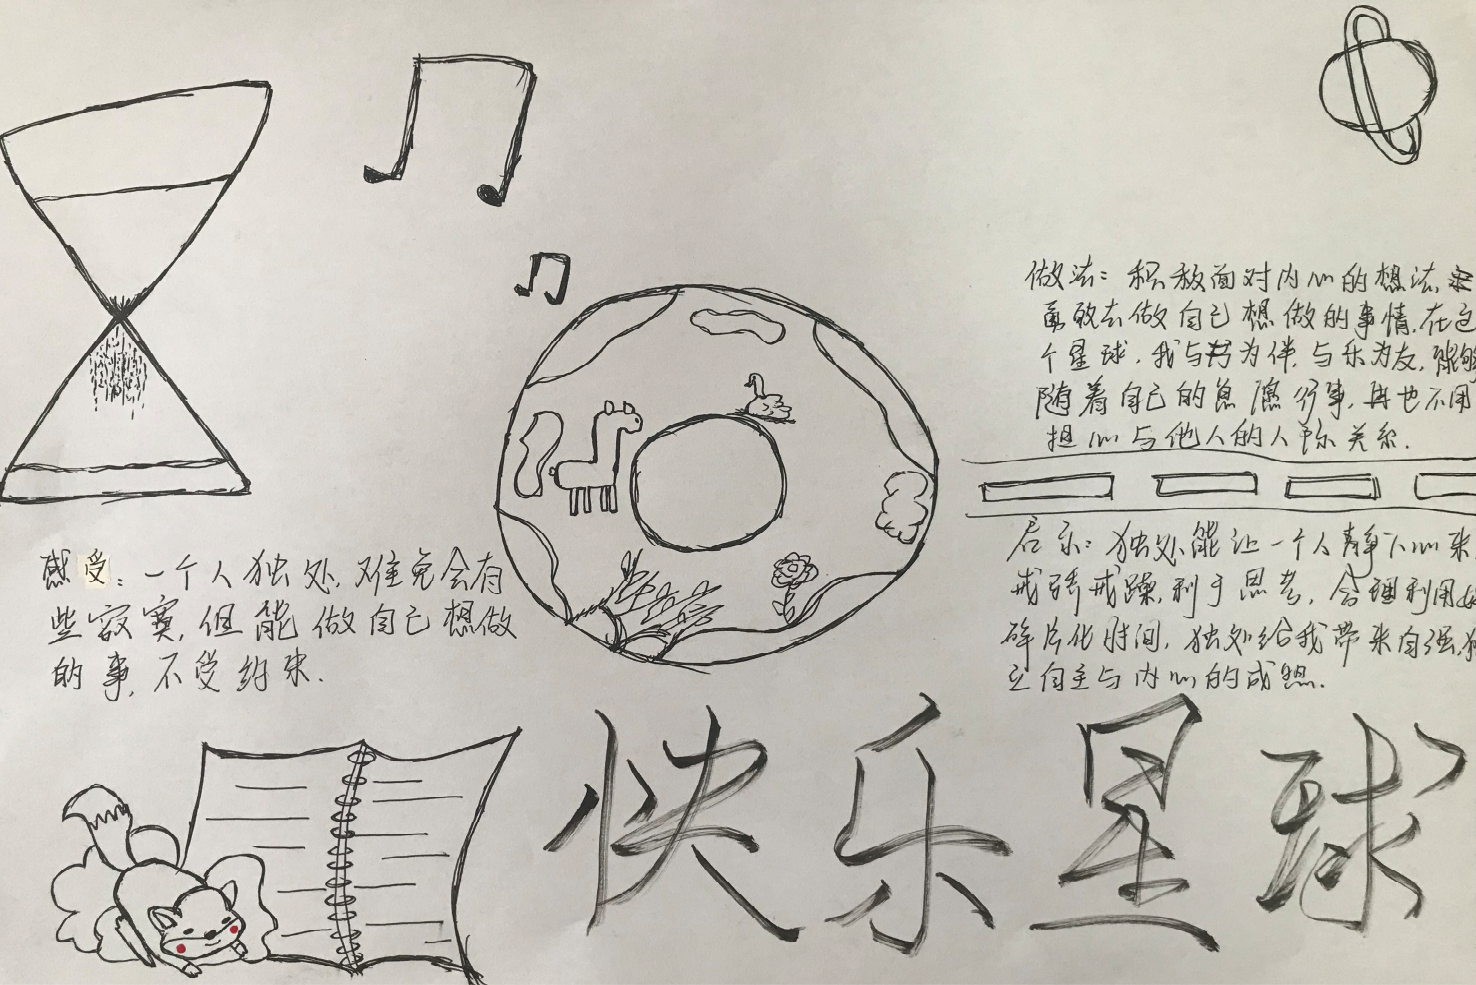 做法：积极面对内心的想法，
勇敢去做自己想做的事情，在这
个星球，我与书为伴，与乐为友，能够
随着自己的意愿行事，再也不用
担心与他人的人际关系．
启示：独处能让一个人静下心来
戒骄戒躁，利于思考，合理利用好
碎片化时间，独处给我带来自强，独
立自主与内心的成熟．
感受：一个人独处，难免会有
些寂寞，但能做自己想做
的事，不受约束．
快乐星球